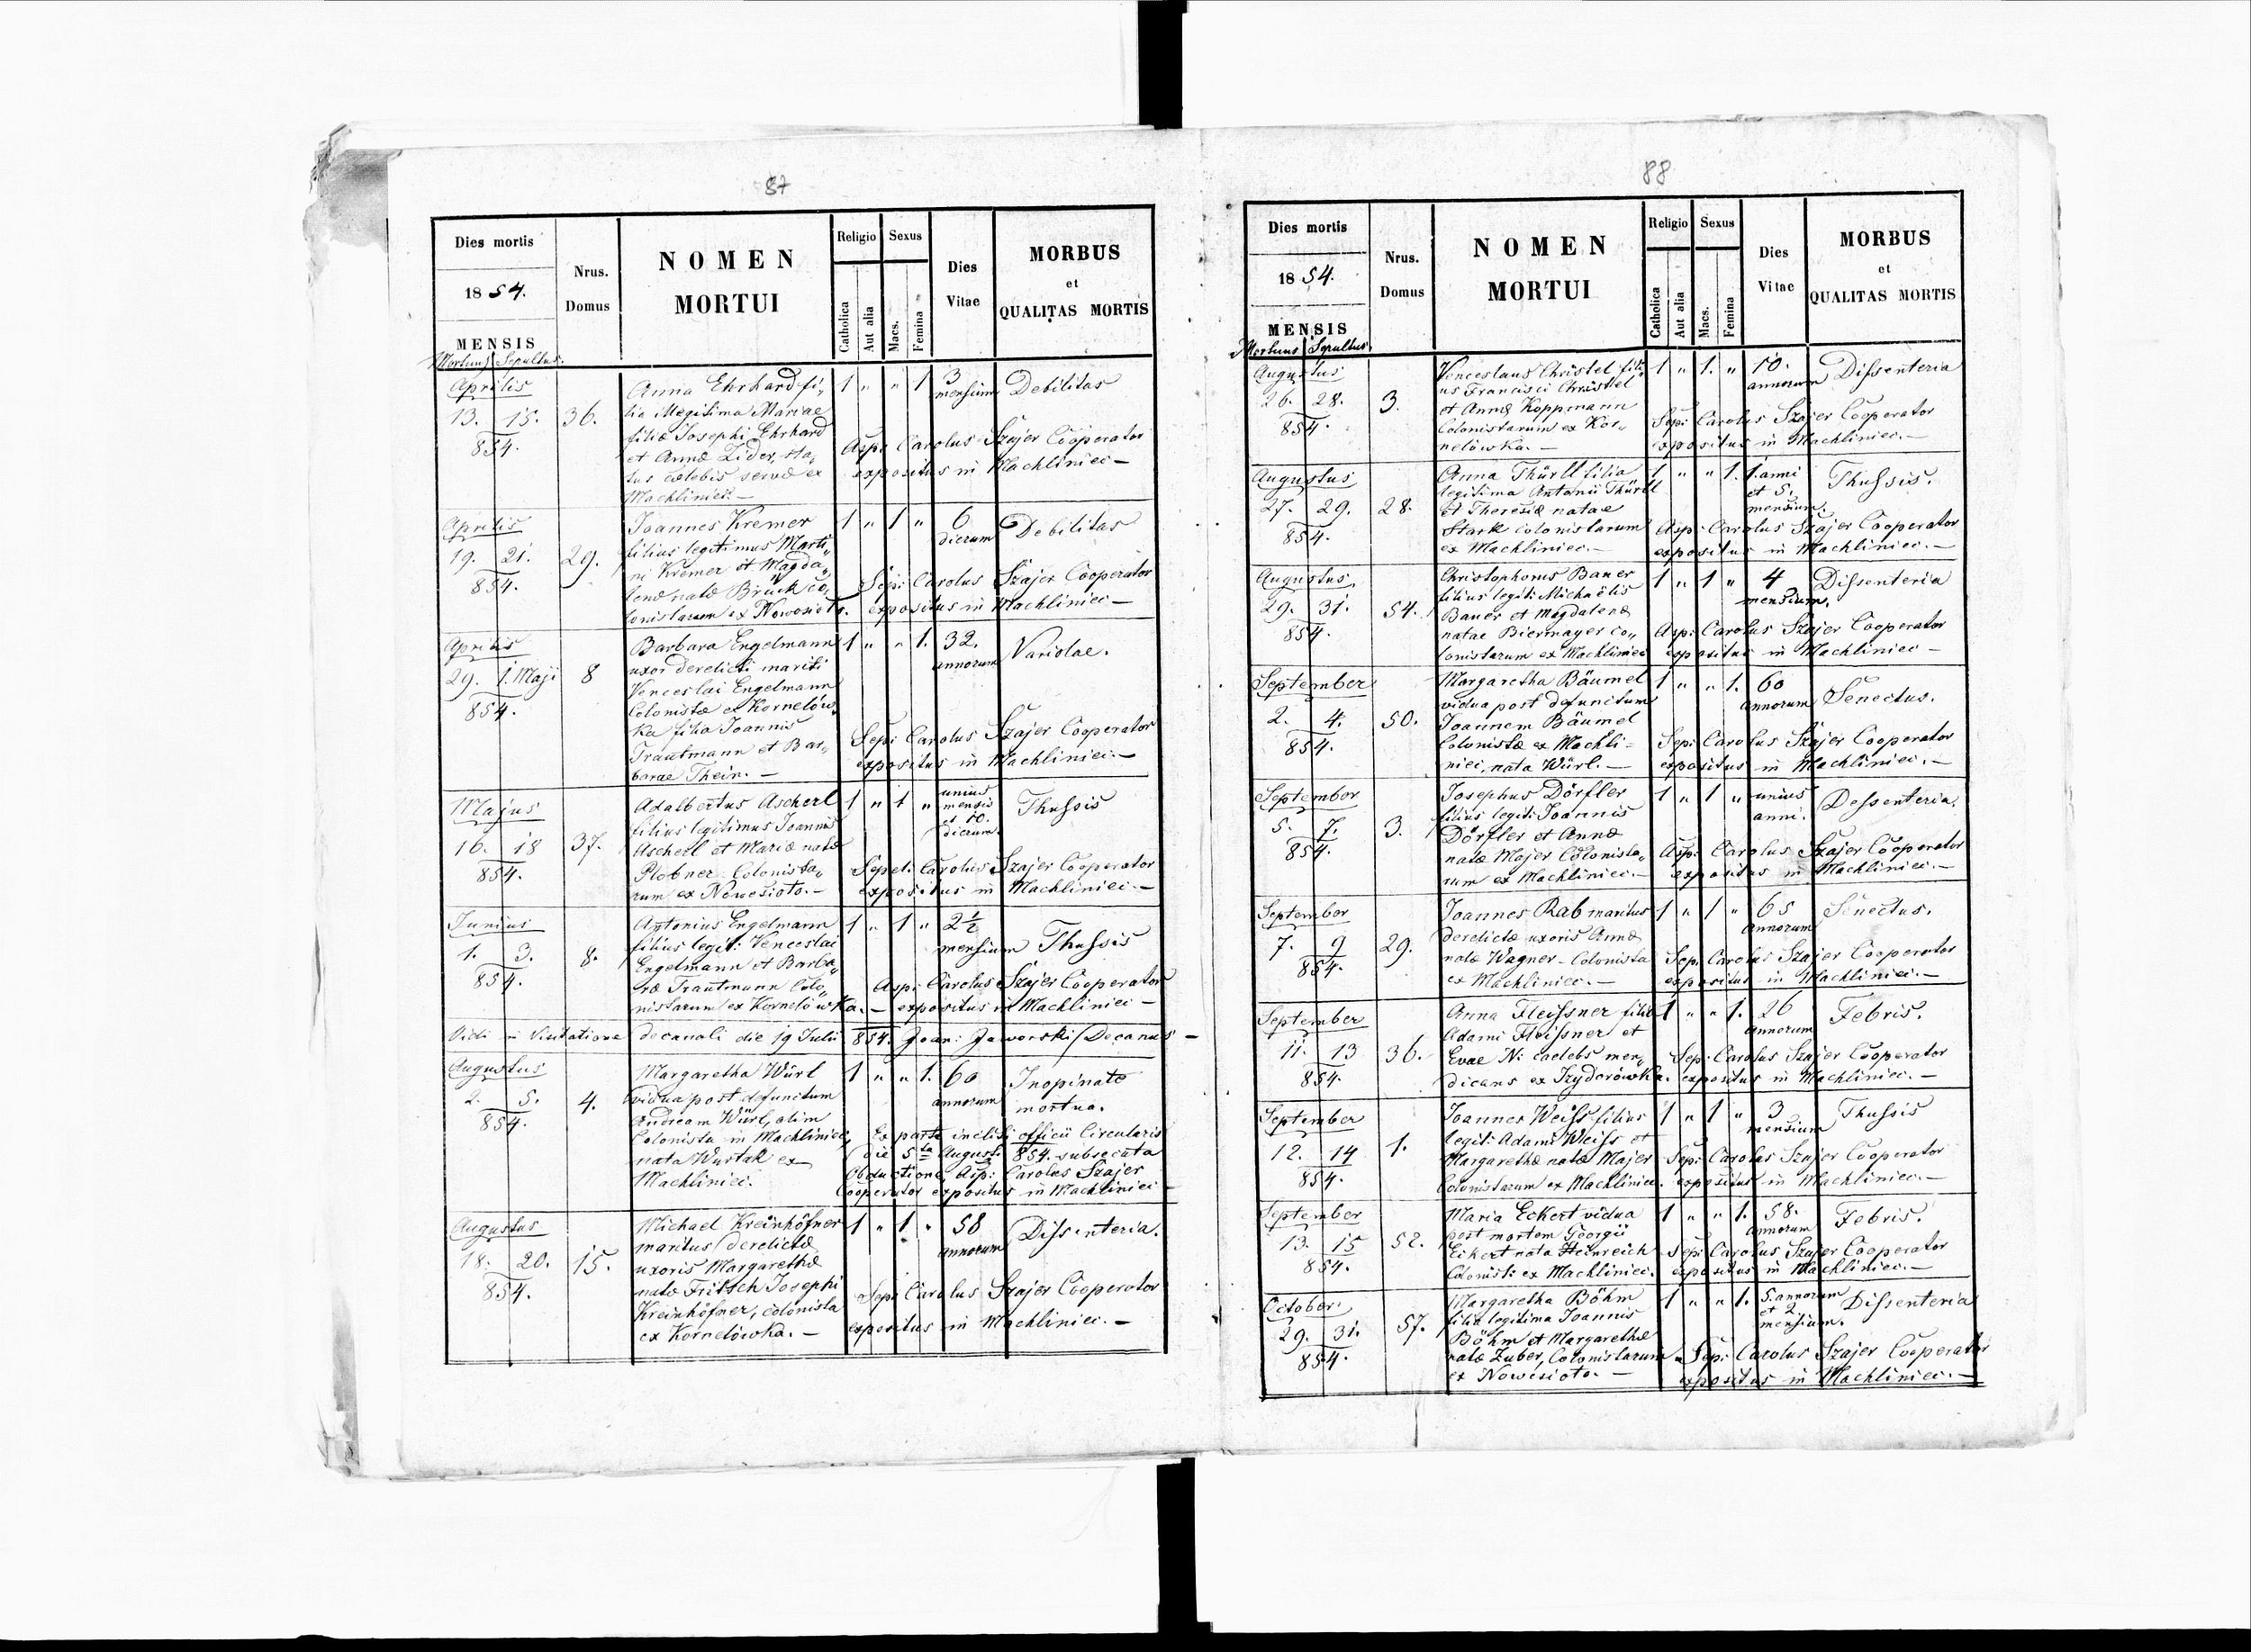 87
Dies mortis
1854.
MENSIS
Mortuus Sepultus
Nrus. Domus
NOMEN MORTUI
Religio
Catholica
Aut alia
Sexus
Macs.
Femina
Dies Vitae
MORBUS et QUALITAS MORTIS
Aprilis
13. 15.
854.
36.
Anna Ehrhard fi„
lia illegitima Mariae
filiæ Josephi Ehrhard
et Annæ Lider, sta„
tus cœlebis servæ ex
Machliniec. —
1 „ „ 1
3 mensium
Debilitas
Asp: Carolus Szajer Cooperator
expositus in Machliniec —
Aprilis
19. 21.
854.
29.
Joannes Kremer
filius legitimus Marti„
ni Kremer et Magda„
lenæ natæ Brück co„
lonistarum ex Nowosioło.
1 „ 1 „
6 dierum
Debilitas
Sepi: Carolus Szajer Cooperator
expositus in Machliniec —
Aprilis
29. 1. Maji
854.
8
Barbara Engelmann
uxor derelicti mariti
Venceslai Engelmann
Colonistæ ex Kornelów„
ka filia Joannis
Trautmann et Bar„
barae Thein. —
1 „ „ 1.
32. annorum
Variolae.
Sepi: Carolus Szajer Cooperator
expositus in Machliniec. —
Majus
16. 18
854.
37.
Adalbertus Ascherl
filius legitimus Joannis
Ascherl et Mariæ natæ
Plobner Colonista„
rum ex Nowesioło. —
1 „ 1 „
unius
mensis
et 10.
dierum.
Thussis
Sepel: Carolus Szajer Cooperator
expositus in Machliniec. —
Junius
1. 3.
854.
8.
Antonius Engelmann
filius legit: Venceslai
Engelmann et Barba„
ræ Trautmann Colo„
nistarum ex Kornelówka. —
1 „ 1 „
2½ mensium
Thussis
Asp: Carolus Szajer Cooperator
expositus in Machliniec —
Vidi in Visitatione decanali die 19 Julii 854. Joan: Jaworski Decanus —
Augustus
2. 5.
854.
4.
Margaretha Würl
vidua post defunctum
Andream Würl, olim
Colonista in Machliniec,
nata Wurtak ex
Machliniec.
1 „ „ 1.
60 annorum
Inopinato
mortua.
Ex parte incliti officii Circularis
die 5ta August: 854. subsecuta
Obductione Asp: Carolus Szajer
Cooperator expositus in Machliniec —
Augustus
18. 20.
854.
15.
Michael Kreinhöfner
maritus derelictæ
uxoris Margarethæ
natæ Fritsch Josephi
Kreinhöfner, colonista
ex Kornelówka. —
1 „ 1 „
58 annorum
Dissenteria.
Sepi: Carolus Szajer Cooperator
expositus in Machliniec. —
88
Dies mortis
1854.
MENSIS
Mortuus Sepultus
Nrus. Domus
NOMEN MORTUI
Religio
Catholica
Aut alia
Sexus
Macs.
Femina
Dies Vitae
MORBUS et QUALITAS MORTIS
Augustus
26. 28.
854.
3.
Venceslaus Christel fili„
us Francisci Christel
et Annæ Koppmann
Colonistarum ex Kor„
nelówka. —
1 „ 1. „
10. annorum
Dissenteria
Sepi: Carolus Szajer Cooperator
expositus in Machliniec. —
Augustus
27. 29.
854.
28.
Anna Thürll filia
legitima Antonii Thürll
et Theresiæ natae
Stark colonistarum
ex Machliniec. —
1 „ „ 1.
1. anni
et 5.
mensium.
Thussis.
Asp: Carolus Szajer Cooperator
expositus in Machliniec. —
Augustus
29. 31.
854.
54.
Christophorus Bauer
filius legit: Michaëlis
Bauer et Magdalenæ
natae Biermayer co„
lonistarum ex Machliniec
1 „ 1 „
4 mensium.
Dissenteria
Asp: Carolus Szajer Cooperator
expositus in Machliniec —
September
2. 4.
854.
50.
Margaretha Bäumel
vidua post defunctum
Joannem Bäumel
Colonistæ ex Machli=
niec, nata Würl. —
1 „ „ 1.
60 annorum
Senectus.
Sepi: Carolus Szajer Cooperator
expositus in Machliniec. —
September
5. 7.
854.
3.
Josephus Dörfler
filius legit: Joannis
Dörfler et Annæ
natæ Majer Colonista„
rum ex Machliniec. —
1 „ 1 „
unius
anni.
Dessenteria.
Asp: Carolus Szajer Cooperator
expositus in Machliniec. —
September
7. 9
854.
29.
Joannes Rab maritus
derelictæ uxoris Annæ
natæ Wagner - Colonista
ex Machliniec. —
1 „ 1 „
65 annorum
Senectus.
Sep: Carolus Szajer Cooperator
expositus in Machliniec. —
September
11. 13
854.
36.
Anna Fleissner filia
Adami Fleissner et
Evae N: caelebs men„
dicans ex Izydorówka.
1 „ „ 1.
26 annorum
Febris.
Sep: Carolus Szajer Cooperator
expositus in Machliniec. —
September
12. 14
854.
1.
Joannes Weiss filius
legit: Adami Weiss et
Margarethæ natæ Majer
Colonistarum ex Machliniec.
1 „ 1 „
3 mensium
Thussis
Sepi: Carolus Szajer Cooperator
expositus in Machliniec. —
September
13. 15
854.
52.
Maria Eckert vidua
post mortem Georgii
Eckert nata Heinreich
Colonist: ex Machliniec.
1 „ „ 1.
58. annorum
Febris.
Sepi: Carolus Szajer Cooperator
expositus in Machliniec. —
October.
29. 31.
854.
57.
Margaretha Böhm
filia legitima Joannis
Böhm et Margarethæ
natæ Zuber, Colonistarum
ex Nowesioło. —
1 „ „ 1.
5. annorum
et 2
mensium.
Dissenteria
Sepi: Carolus Szajer Cooperator
expositus in Machliniec. —